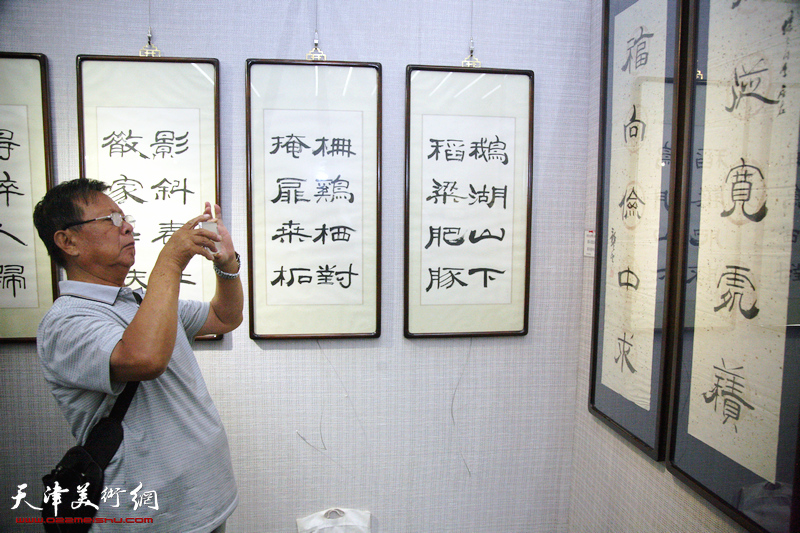 從寬處積
福向儉中求
鵝湖山下
稻粱肥豚
柵鷄栖對
掩扉桒柘
影斜春
散家
得醉人歸
天津美術網